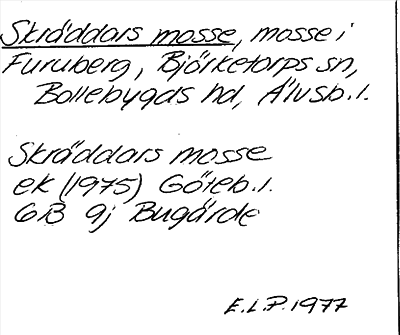 Skräddars mosse, mosse i
Furuberg, Björketorps sn,
Bollebygds hd, Älvsb.l.
Skräddars mosse
ek (1975) Göteb.l.
6B 9j Bugärde
E.L.P. 1977